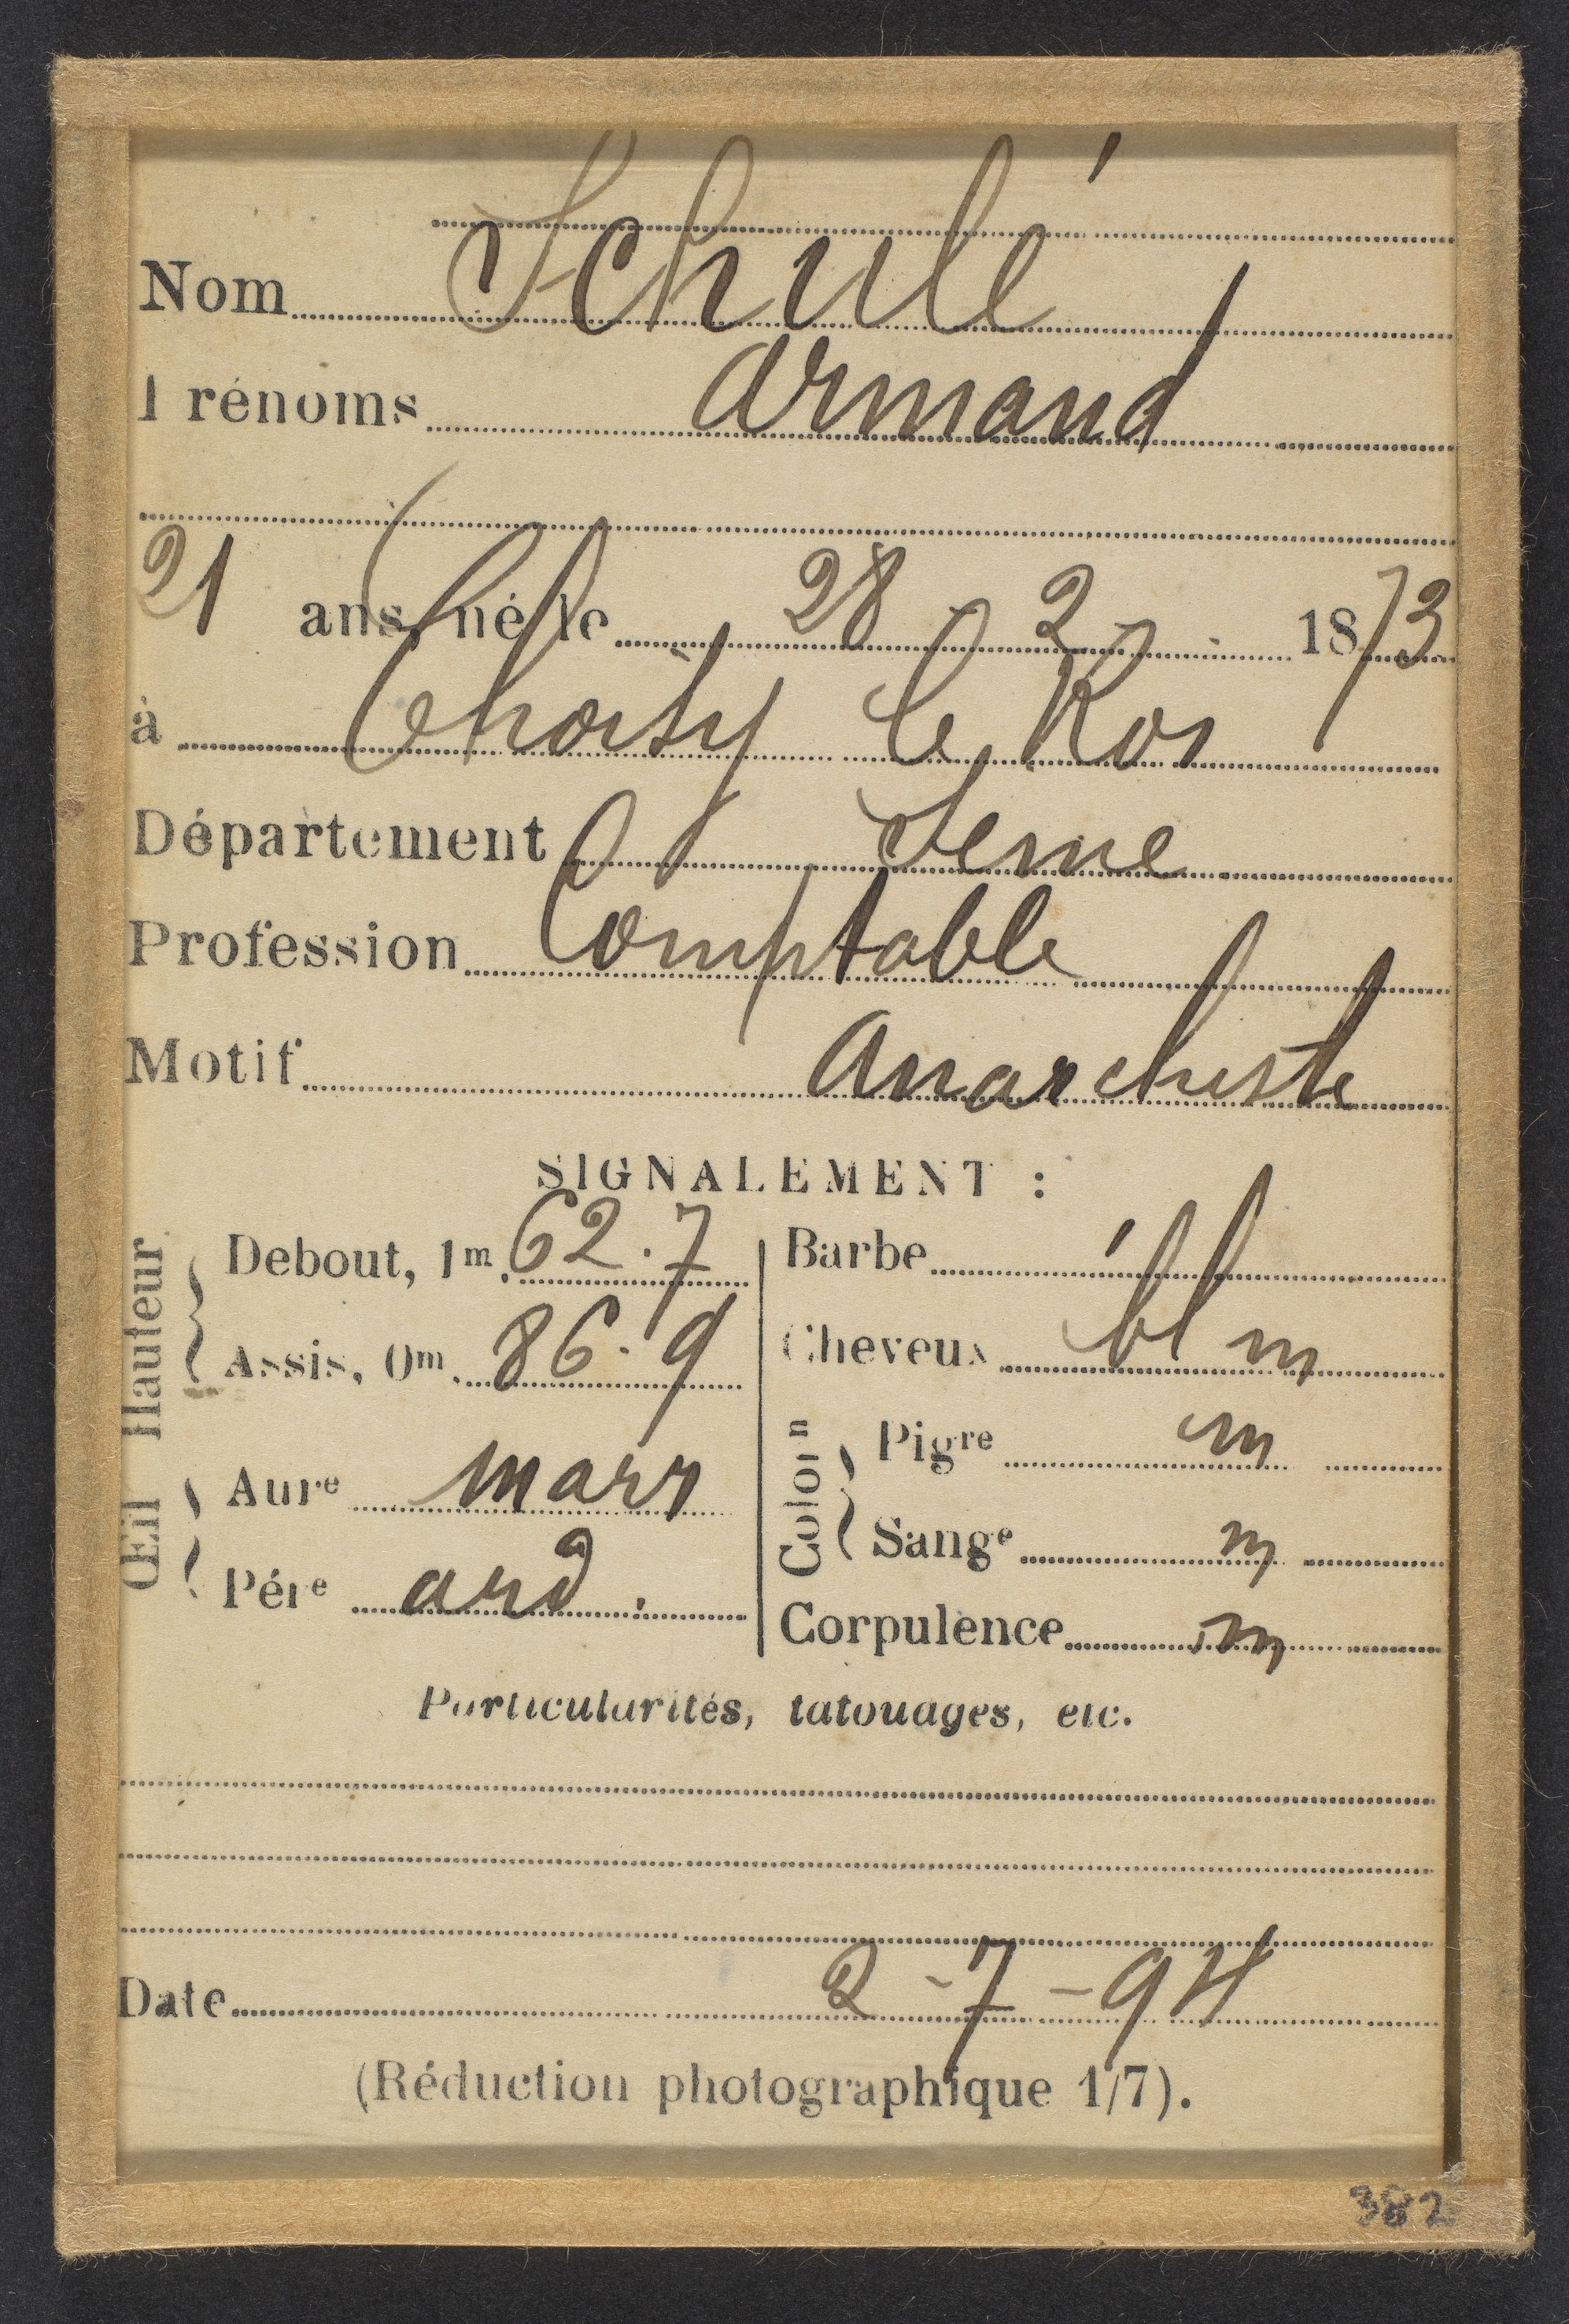 Nom Schulé
Prénoms Armand
21 ans, né le 28 - 2 - 1873
à Choisy le Roi
Département Seine
Profession Comptable
Motif Anarchiste
SIGNALEMENT :
Hauteur
Debout, 1m. 62.7
Assis, 0m. 86.9
Œil
Aure marr
Pére ard.
Barbe
Cheveux bl m
Colorn
Pigre m
Sange m
Corpulence m
Particularités, tatouages, etc.
Date 2-7-94
(Réduction photographique 1/7).
382